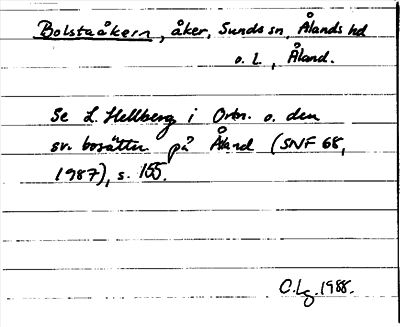 Bolstaåkern, åker, Sunds sn, Ålands hd
o. l., Åland.
Se L. Hellberg i Ortn. o. den
sv. bosättn. på Åland (SNF 68,
1987), s. 155.
C.Lg. 1988.